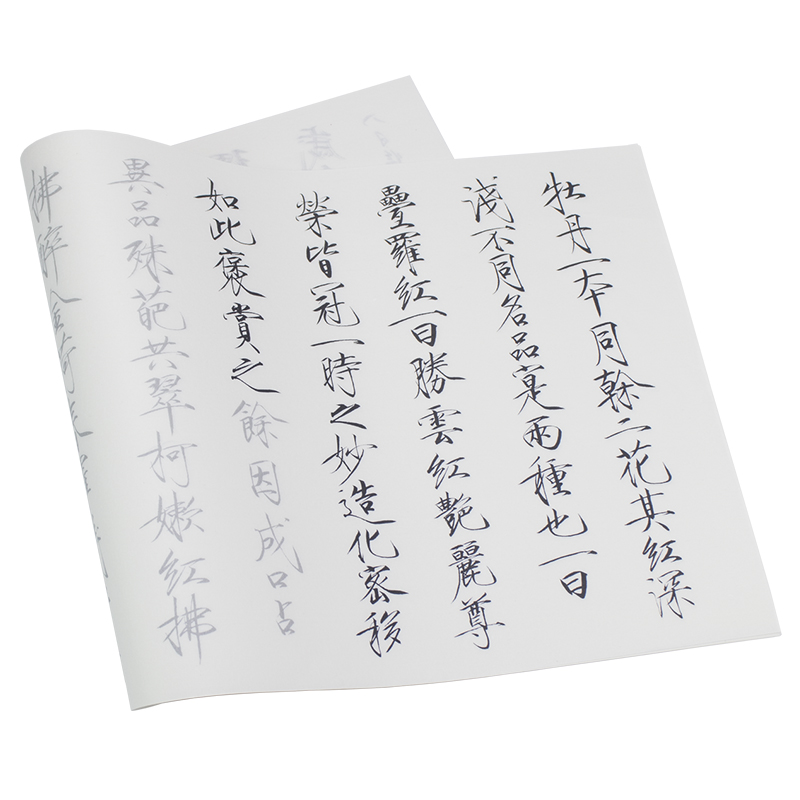 牡丹一本同榦二花其紅深
淺不同名品寔兩種也一曰
疊羅紅一曰勝雲紅艷麗尊
榮皆冠一時之妙造化密移
如此褒賞之餘因成口占
異品殊葩共翠柯嫩紅拂
拂醉金荷